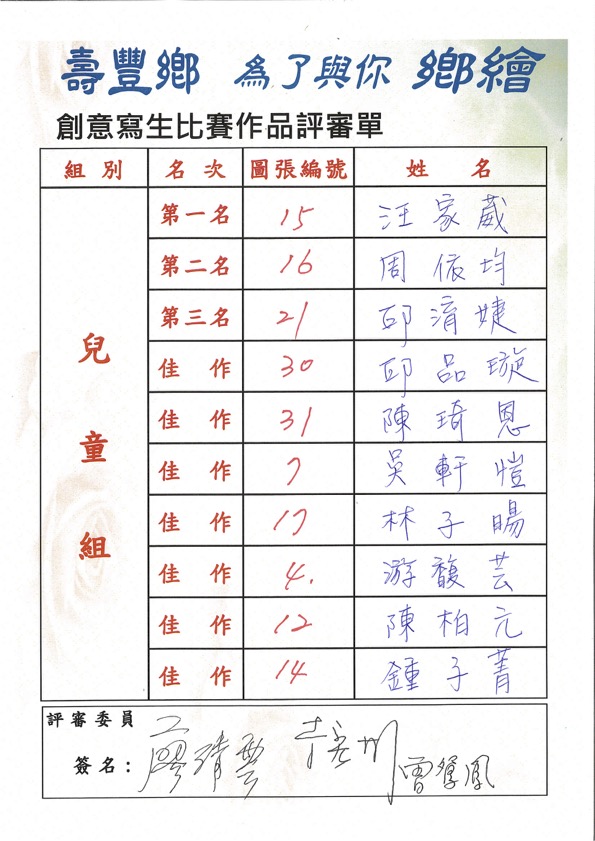 壽豐鄉 為了與你 鄉繪
創意寫生比賽作品評審單
組別 名次 圖張編號 姓名
兒童組
第一名 15 汪家葳
第二名 16 周依均
第三名 21 邱淯婕
佳作 30 邱品璇
佳作 31 陳琦恩
佳作 7 吳軒愷
佳作 17 林子暘
佳作 4. 游馥芸
佳作 12 陳柏元
佳作 14 鍾子菁
評審委員
簽名： 廖清雲